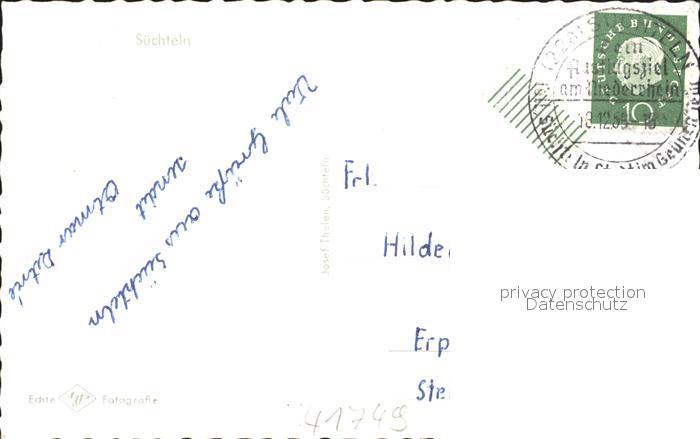 Süchteln
Viele Grüße aus Süchteln
sendet
Otmar
Josef Thelen, Süchteln
Echte Agfa Fotografie
Frl.
Hilde
Erp
Ste
41749
(22a) SÜCHTELN
ein
Ausflugsziel
am Niederrhein
16.12.59-18
Stadt im Grünen
DEUTSCHE BUNDESPOST
10
privacy protection
Datenschutz